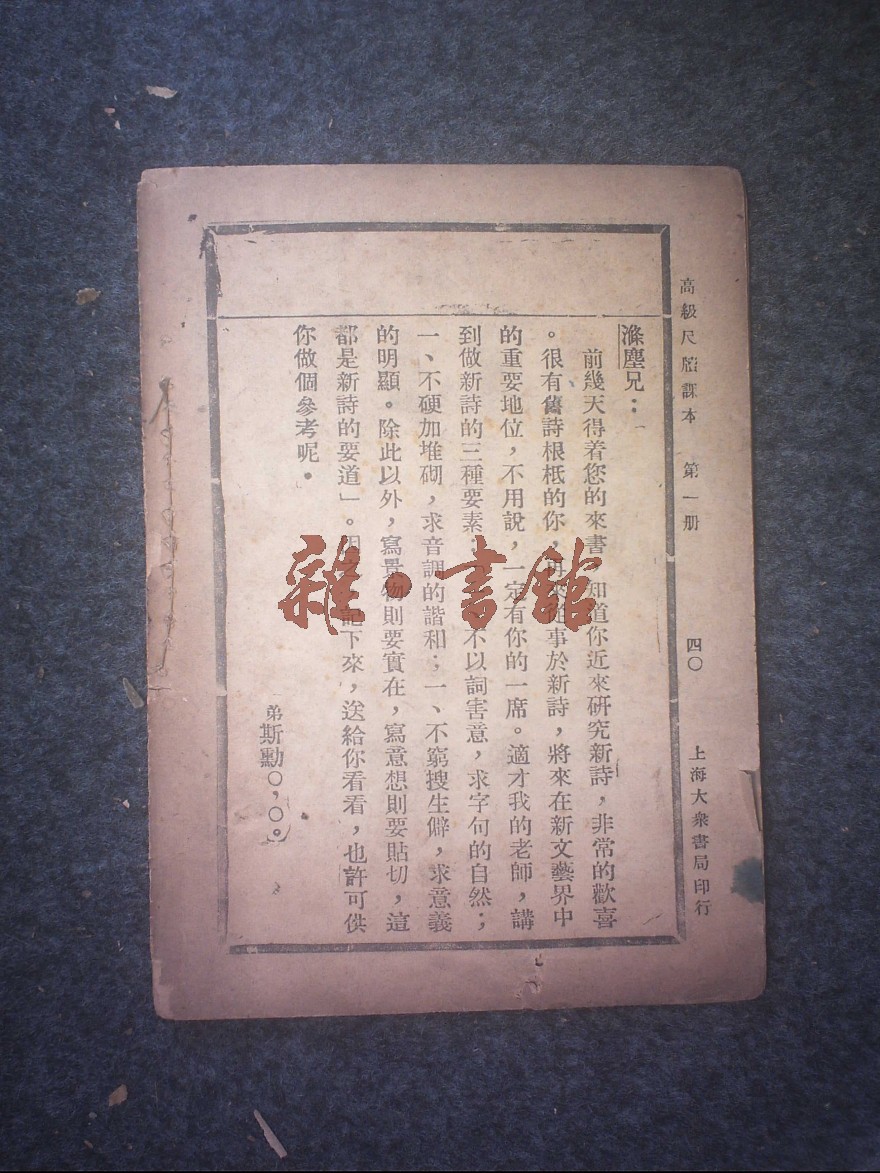 高級尺牘課本　第一册　四〇　上海大衆書局印行
滌塵兄：
前幾天得着您的來書　知道你近來研究新詩，非常的歡喜
。很有舊詩根柢的你，從事於新詩，將來在新文藝界中
的重要地位，不用說，一定有你的一席。適才我的老師，講
到做新詩的三種要素　不以詞害意，求字句的自然；
一、不硬加堆砌，求音調的諧和；一、不窮搜生僻，求意義
的明顯。除此以外，寫景物則要實在，寫意想則要貼切，這
都是新詩的要道」。記下來，送給你看看，也許可供
你做個參考呢．
弟斯勳〇，〇。
雜·書館